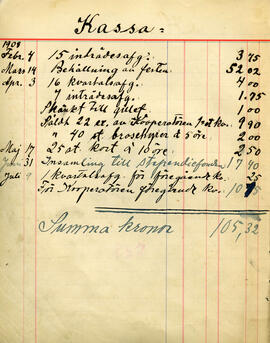 Kassa:
1908
Febr. 4 15 inträdesafg: 3 75
Mars 14 Behållning av festen 52 02
Apr. 3 16 kvartalsafg. 4 00
7 inträdesafg. 1.75
Skänkt till gillet 1.00
Såldt 22 ex. av Kooperatören 9 90
" 40 st broschyrer à 5 öre 2 00
Maj 17 25 st. kort à 10 öre. 2 50
31 Insamling till stipendiefonden 17 90
Juli 9 1 kvartalsafg. för föregående kv. 25
För Kooperatören föregående kv. 10
Summa kronor 105,32